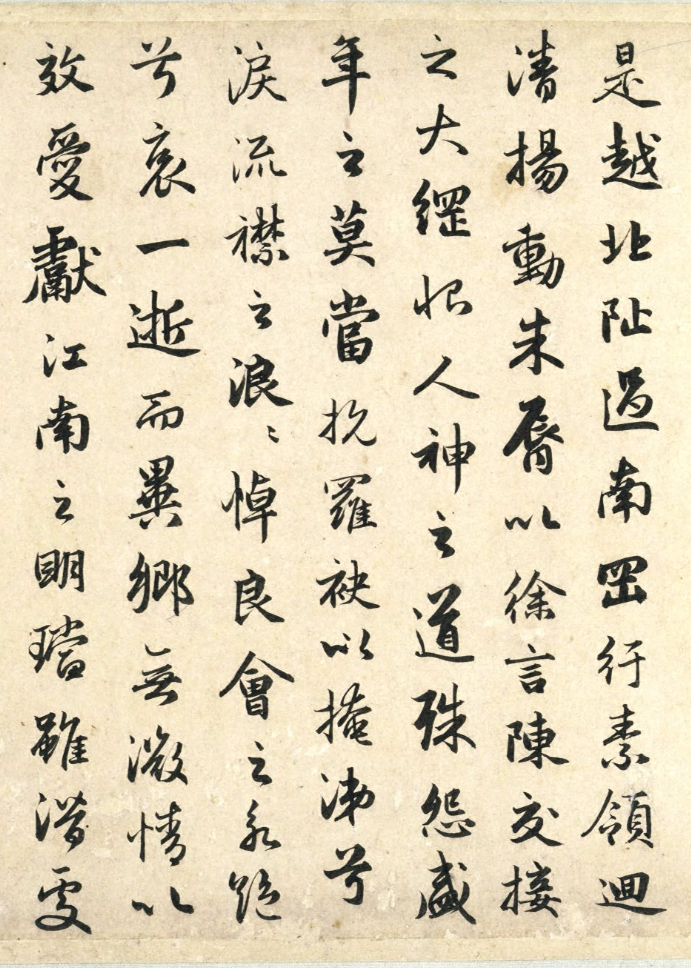 是越北阯過南岡紆素領迴
清揚動朱脣以徐言陳交接
之大綱恨人神之道殊怨盛
年之莫當抗羅袂以掩涕兮
淚流襟之浪〻悼良會之永絶
兮哀一逝而異鄉無微情以
效愛獻江南之明璫雖潛處